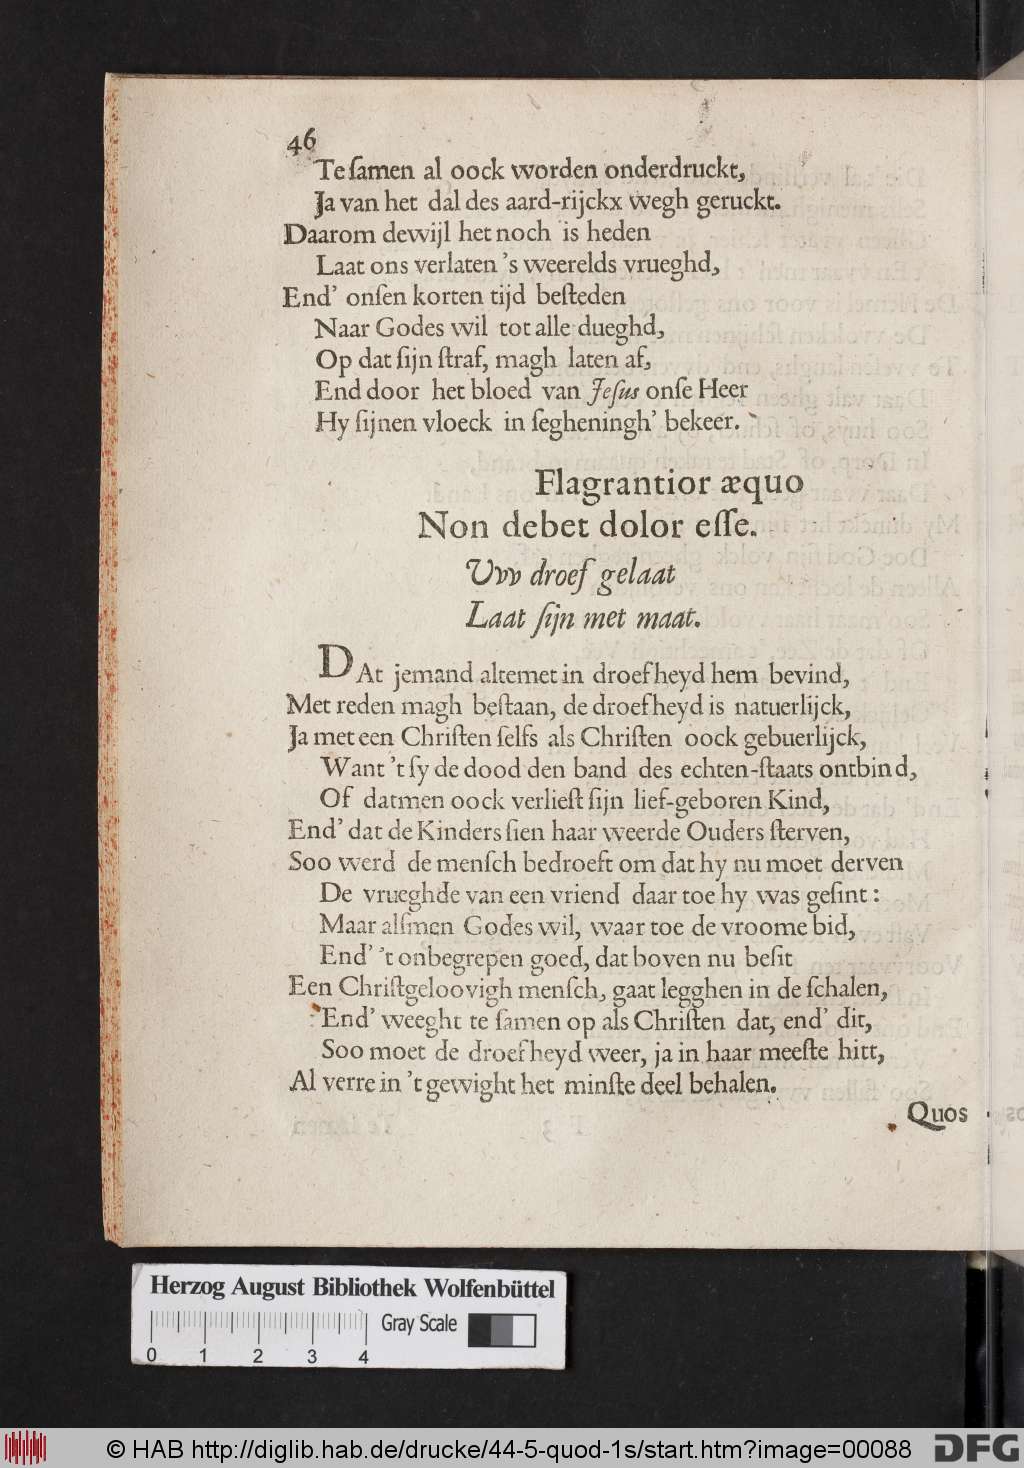 46
Te ſamen al oock worden onderdruckt,
Ja van het dal des aard-rijckx wegh geruckt.
Daarom dewijl het noch is heden
Laat ons verlaten 's weerelds vrueghd,
End' onſen korten tijd beſteden
Naar Godes wil tot alle dueghd,
Op dat ſijn ſtraf, magh laten af,
End door het bloed van Jeſus onſe Heer
Hy ſijnen vloeck in ſegheningh' bekeer.
Flagrantior æquo
Non debet dolor eſſe.
Uvv droef gelaat
Laat ſijn met maat.
DAt jemand altemet in droefheyd hem bevind,
Met reden magh beſtaan, de droefheyd is natuerlijck,
Ja met een Chriſten ſelfs als Chriſten oock gebuerlijck,
Want 't ſy de dood den band des echten-ſtaats ontbind,
Of datmen oock verlieſt ſijn lief-geboren Kind,
End' dat de Kinders ſien haar weerde Ouders ſterven,
Soo werd de menſch bedroeft om dat hy nu moet derven
De vrueghde van een vriend daar toe hy was geſint:
Maar alſmen Godes wil, waar toe de vroome bid,
End' 't onbegrepen goed, dat boven nu beſit
Een Chriſtgeloovigh menſch, gaat legghen in de ſchalen,
End' weeght te ſamen op als Chriſten dat, end' dit,
Soo moet de droefheyd weer, ja in haar meeſte hitt,
Al verre in 't gewight het minſte deel behalen.
Quos
Herzog August Bibliothek Wolfenbüttel
Gray Scale
0 1 2 3 4
© HAB http://diglib.hab.de/drucke/44-5-quod-1s/start.htm?image=00088
DFG